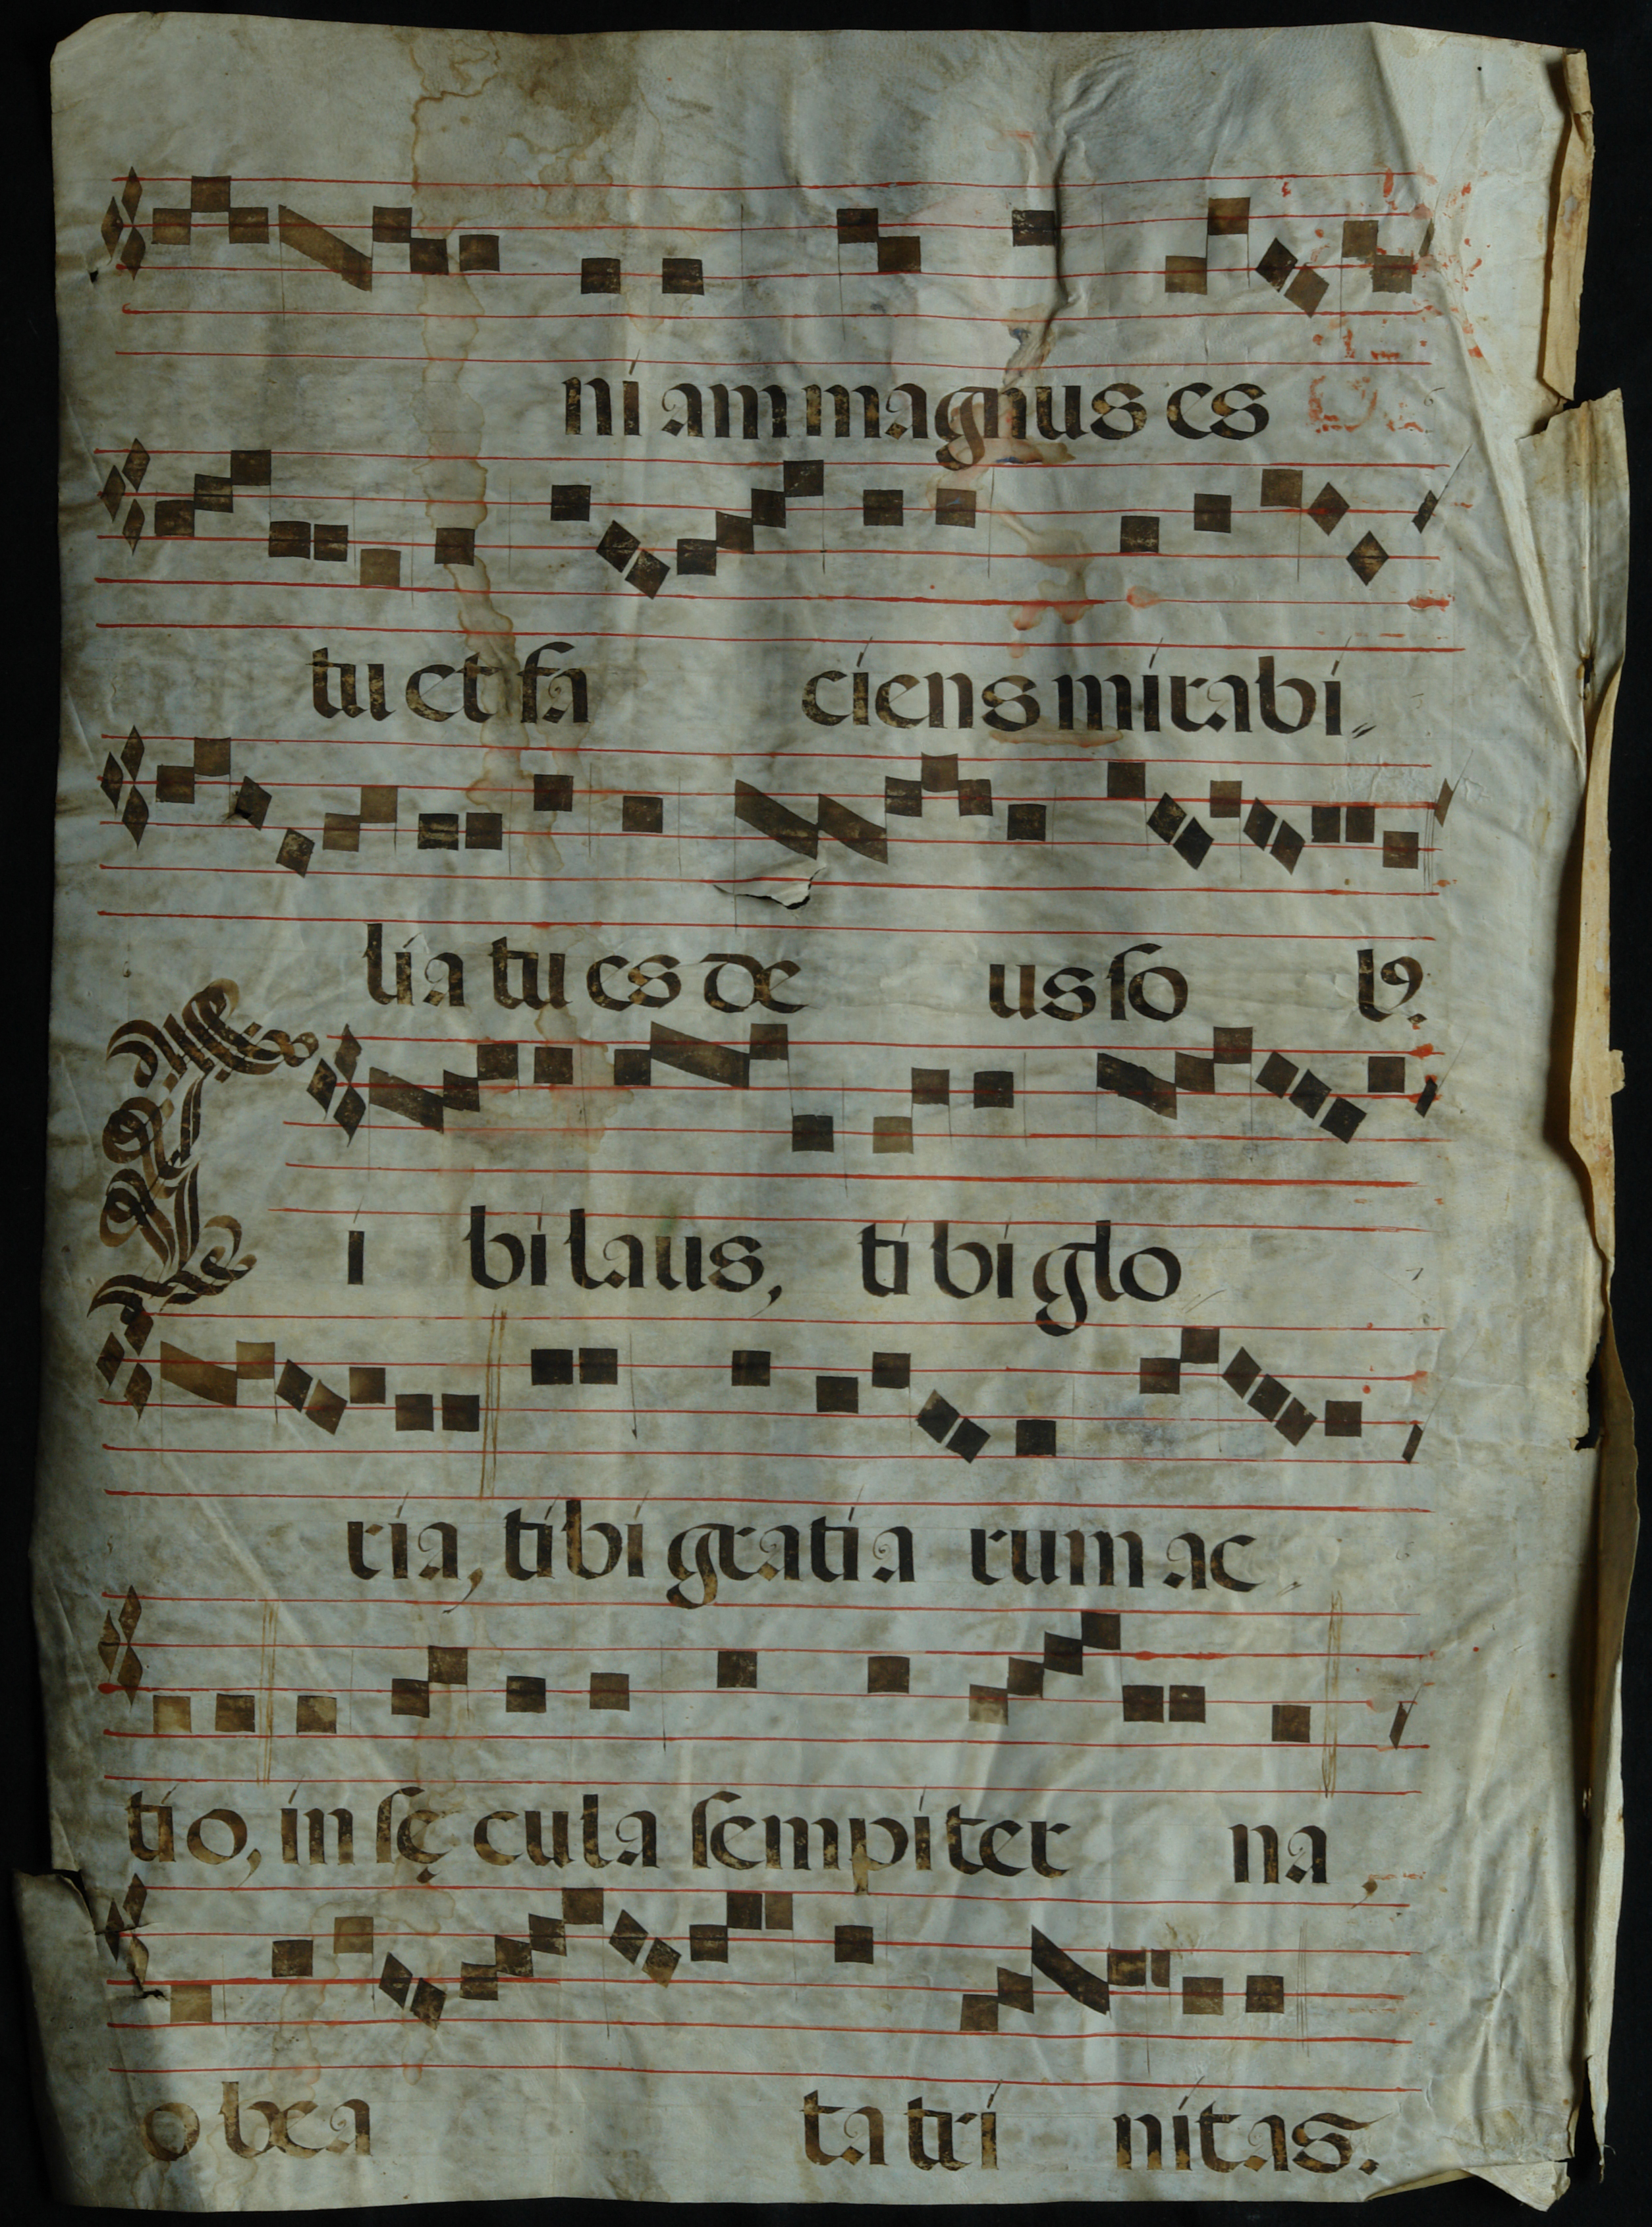 ni am magnus es
tu et fa ciens mirabi
lia tu es de us so l9.
Ti bi laus, ti bi glo
ria, tibi gratia rum ac
tio, in sę cula sempiter na,
o bea ta tri nitas.